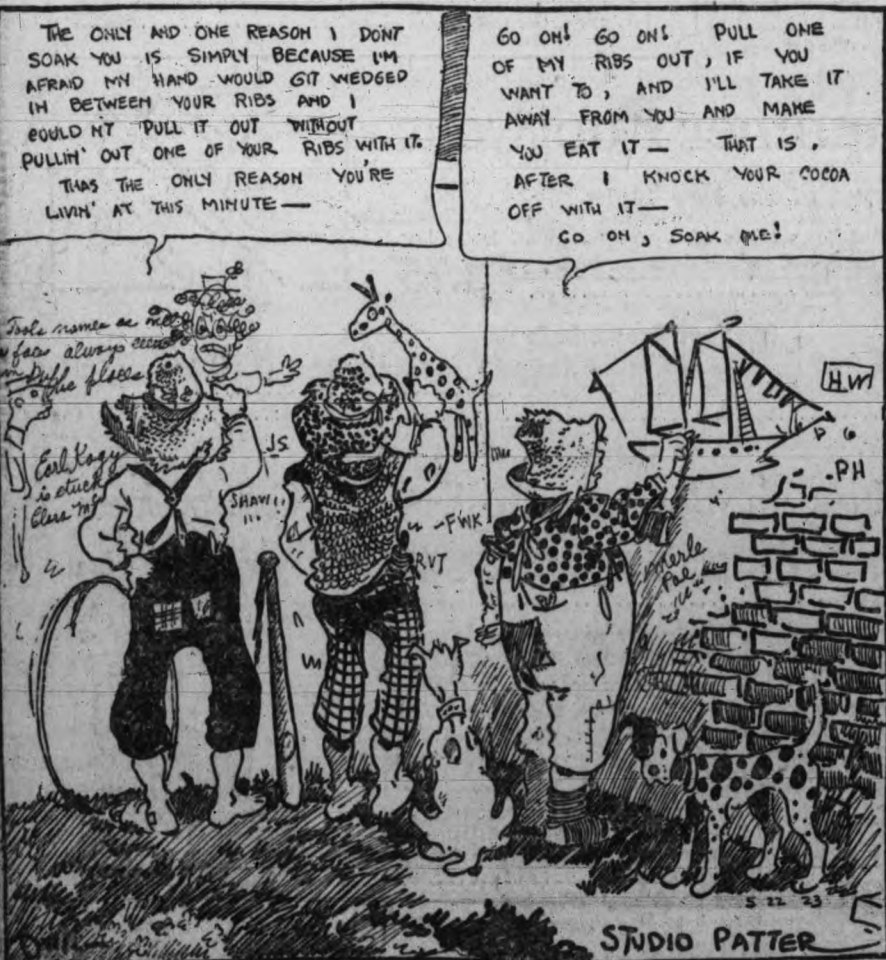 THE ONLY AND ONE REASON I DON'T
SOAK YOU IS SIMPLY BECAUSE I'M
AFRAID MY HAND WOULD GIT WEDGED
IN BETWEEN YOUR RIBS AND I
COULDN'T PULL IT OUT WITHOUT
PULLIN' OUT ONE OF YOUR RIBS WITH IT.
THAS THE ONLY REASON YOU'RE
LIVIN' AT THIS MINUTE—
GO ON! GO ON! PULL ONE
OF MY RIBS OUT, IF YOU
WANT TO, AND I'LL TAKE IT
AWAY FROM YOU AND MAKE
YOU EAT IT— THAT IS,
AFTER I KNOCK YOUR COCOA
OFF WITH IT—
GO ON, SOAK ME!
Fools names as
faces always
in public places
Earl Kagy
is stuck
JS
SHAW
FWK
RVT
H.W
PH
merle
5 22 23
STUDIO PATTER